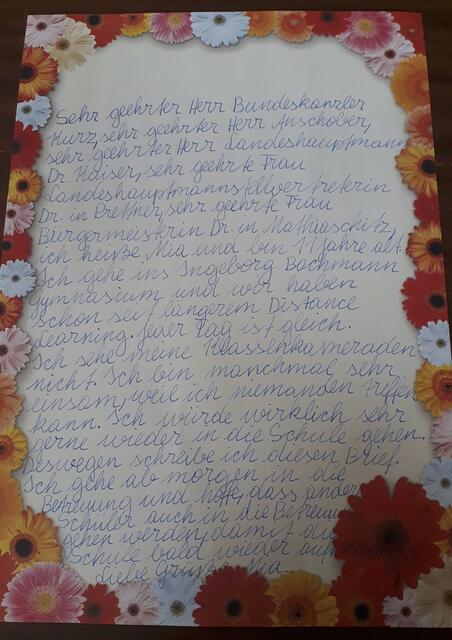 Sehr geehrter Herr Bundeskanzler
Kurz, sehr geehrter Herr Anschober,
sehr geehrter Herr Landeshauptmann
Dr. Kaiser, sehr geehrte Frau
Landeshauptmannstellvertreterin
Dr. in Prettner, sehr geehrte Frau
Bürgermeisterin Dr. in Mathiaschitz,
ich heiße Mia und bin 11 Jahre alt.
Ich gehe ins Ingeborg Bachmann
gymnasium und wir haben
schon seit längerem Distance
Learning. Jeder Tag ist gleich.
Ich sehe meine Klassenkameraden
nicht. Ich bin manchmal sehr
einsam, weil ich niemanden treffen
kann. Ich würde wirklich sehr
gerne wieder in die Schule gehen.
Deswegen schreibe ich diesen Brief.
Ich gehe ab morgen in die
Betreuung und hoffe, dass andere
Schüler auch in die Betreuung
gehen werden, damit die
Schule bald wieder
Liebe Grüße Mia.